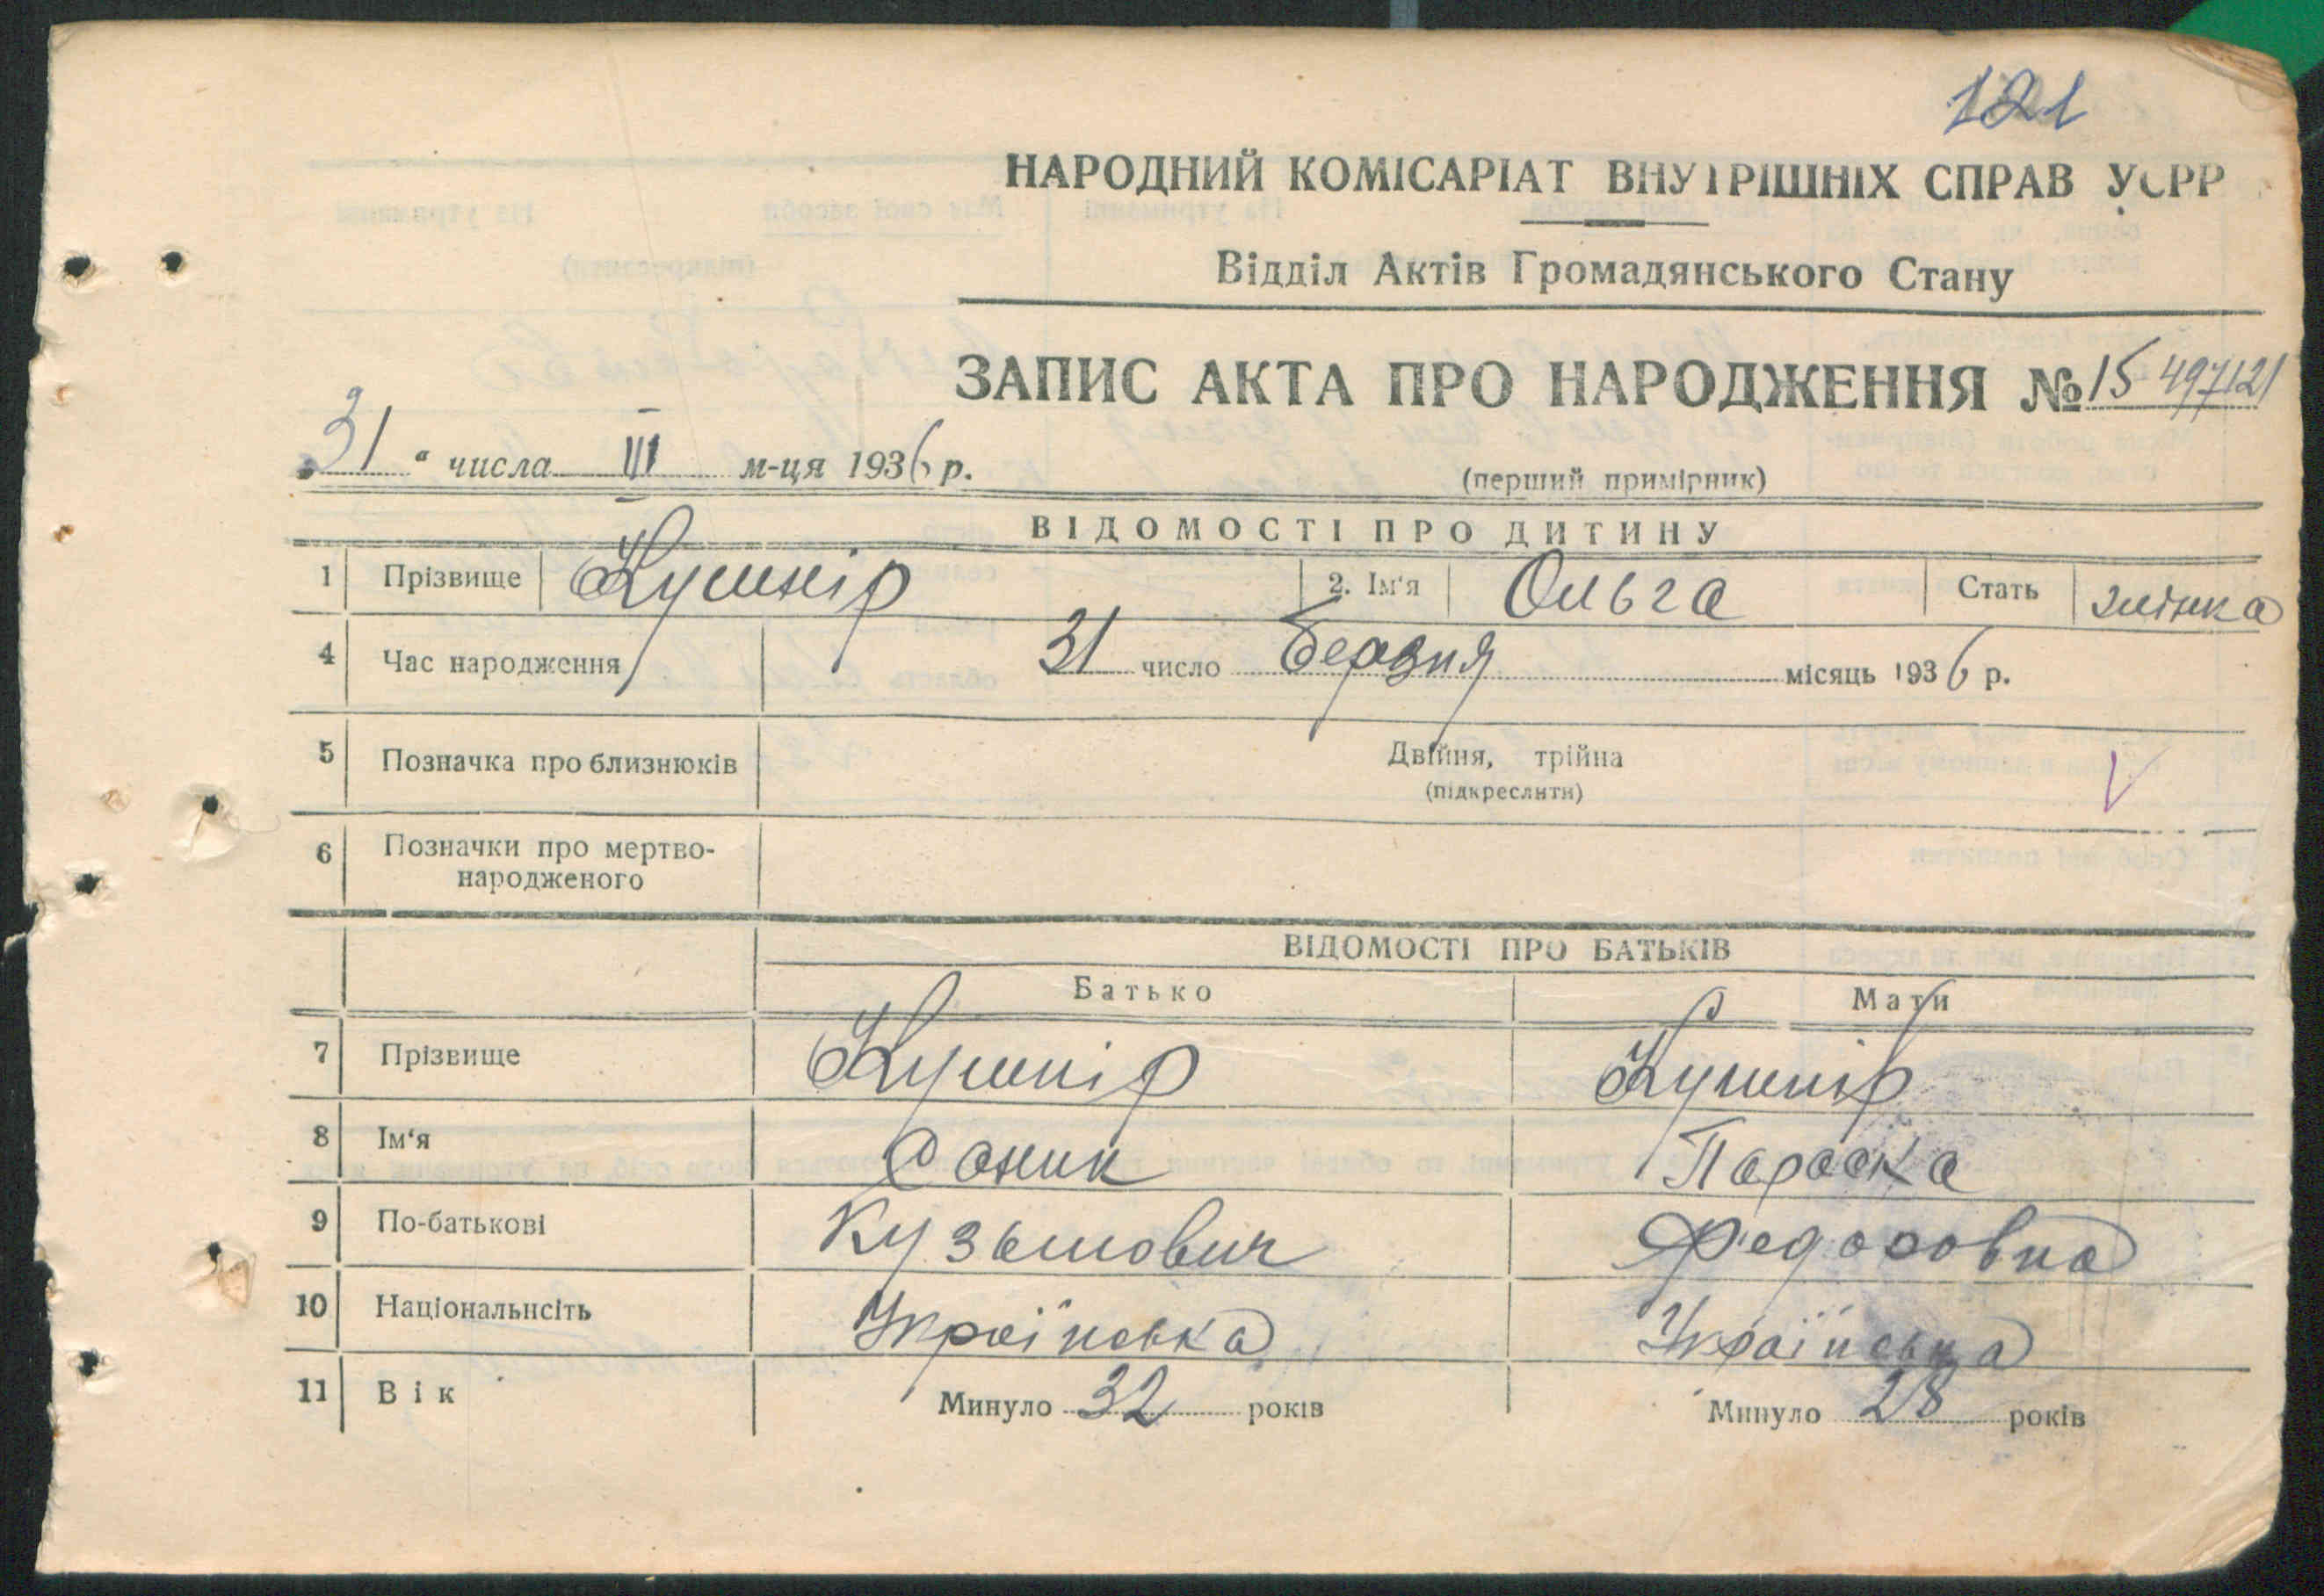 121
НАРОДНИЙ КОМІСАРІАТ ВНУТРІШНІХ СПРАВ УСРР
Відділ Актів Громадянського Стану
ЗАПИС АКТА ПРО НАРОДЖЕННЯ № 15 497121
„31“ числа III м-ця 1936 р.
(перший примірник)
ВІДОМОСТІ ПРО ДИТИНУ
1 Прізвище Кушнір 2. Ім'я Ольга Стать жінка
4 Час народження 31 число березня місяць 1936 р.
5 Позначка про близнюків Двійня, трійна
(підкреслити)
6 Позначки про мертво-
народженого
ВІДОМОСТІ ПРО БАТЬКІВ
Батько Мати
7 Прізвище Кушнір Кушнір
8 Ім'я Параска
9 По-батькові Кузьмович Федоровна
10 Національнсіть Українська Українська
11 Вік Минуло 32 років Минуло 28 років